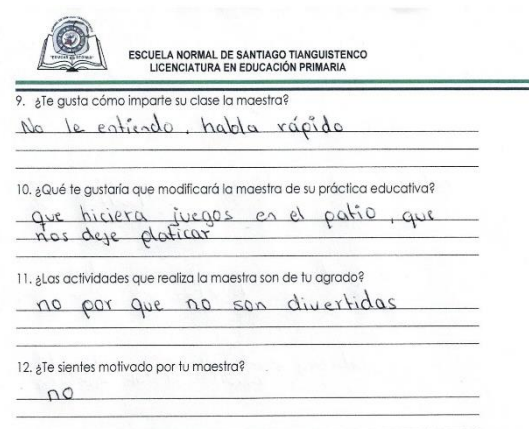 ESCUELA NORMAL DE SANTIAGO TIANGUISTENCO
LICENCIATURA EN EDUCACIÓN PRIMARIA
9. ¿Te gusta cómo imparte su clase la maestra?
No le entiendo, habla rápido
10. ¿Qué te gustaría que modificará la maestra de su práctica educativa?
que hiciera juegos en el patio, que
nos deje platicar
11. ¿Las actividades que realiza la maestra son de tu agrado?
no por que no son divertidas
12. ¿Te sientes motivado por tu maestra?
no